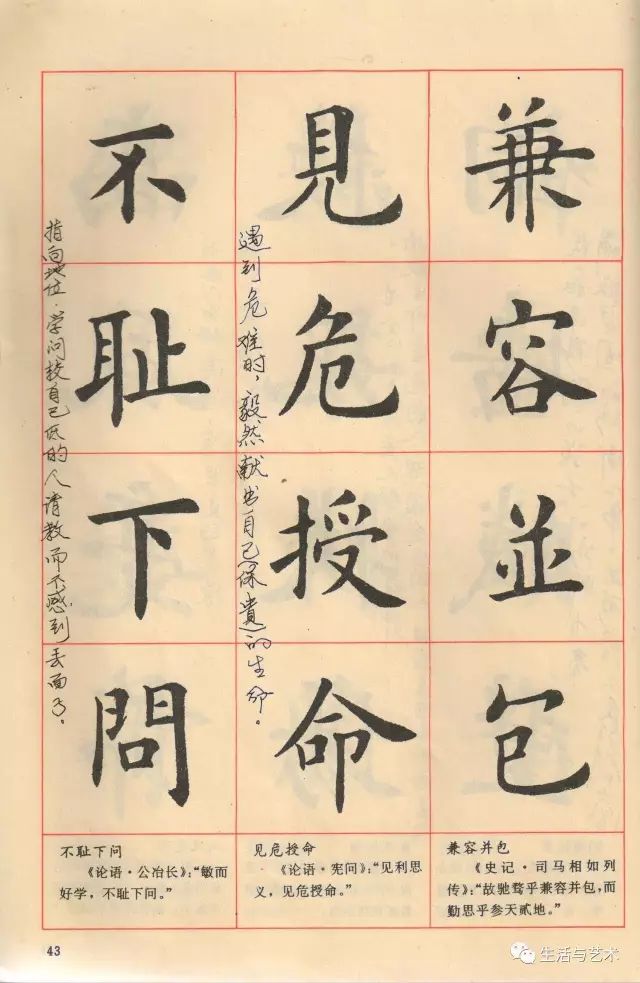 兼容並包
見危授命
遇到危难时，毅然献出自己保貴的生命。
不耻下問
指向地位·学问较自己低的人请教而不感到丢面子。
兼容并包
《史记·司马相如列
传》：“故驰骛乎兼容并包，而
勤思乎参天贰地。”
见危授命
《论语·宪问》：“见利思
义，见危授命。”
不耻下问
《论语·公冶长》：“敏而
好学，不耻下问。”
43
生活与艺术